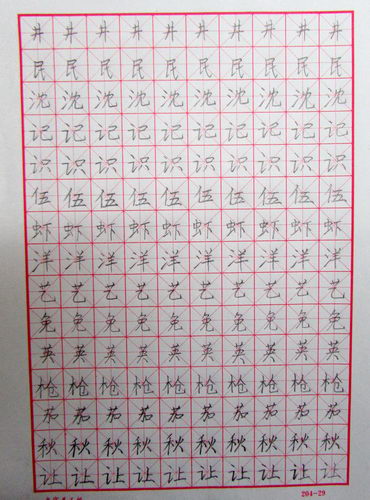 井井井井井井井井井井
民民民民民民民民民民
沈沈沈沈沈沈沈沈沈沈
记记记记记记记记记记
识识识识识识识识识识
伍伍伍伍伍伍伍伍伍伍
虾虾虾虾虾虾虾虾虾虾
洋洋洋洋洋洋洋洋洋洋
艺艺艺艺艺艺艺艺艺艺
免免免免免免免免免免
英英英英英英英英英英
枪枪枪枪枪枪枪枪枪枪
茄茄茄茄茄茄茄茄茄茄
秋秋秋秋秋秋秋秋秋秋
让让让让让让让让让让
204-29